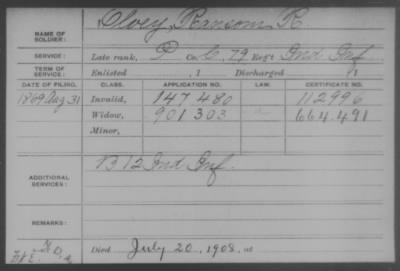 NAME OF SOLDIER: Olvey, Ransom R.
SERVICE: Late rank, P Co. C, 79 Reg't Ind Inf.
TERM OF SERVICE: Enlisted , 1 Discharged , 1
DATE OF FILING. CLASS. APPLICATION NO. LAW. CERTIFICATE NO.
1869 Aug 31 Invalid, 147 480 112 996
Widow, 901 303 664 491
Minor,
ADDITIONAL SERVICES: B 12 Ind Inf.
REMARKS:
Died July 20, 1908, at